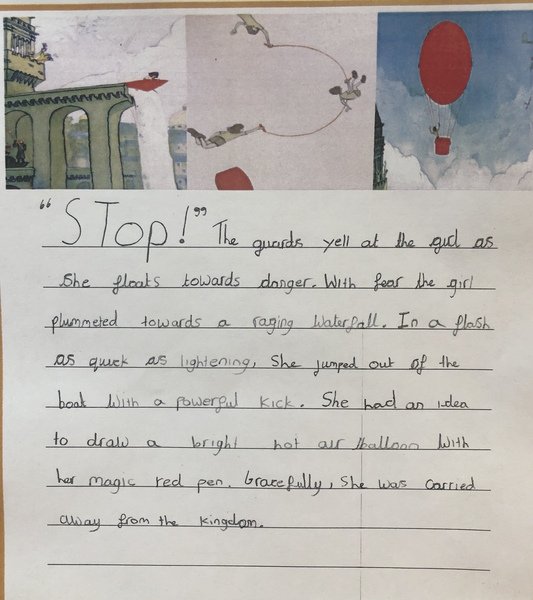 "STOP!" The guards yell at the girl as
she floats towards danger. With fear the girl
plummeted towards a raging waterfall. In a flash
as quick as lightening, she jumped out of the
boat with a powerful kick. She had an idea
to draw a bright hot air balloon with
her magic red pen. Gracefully, she was carried
away from the kingdom.